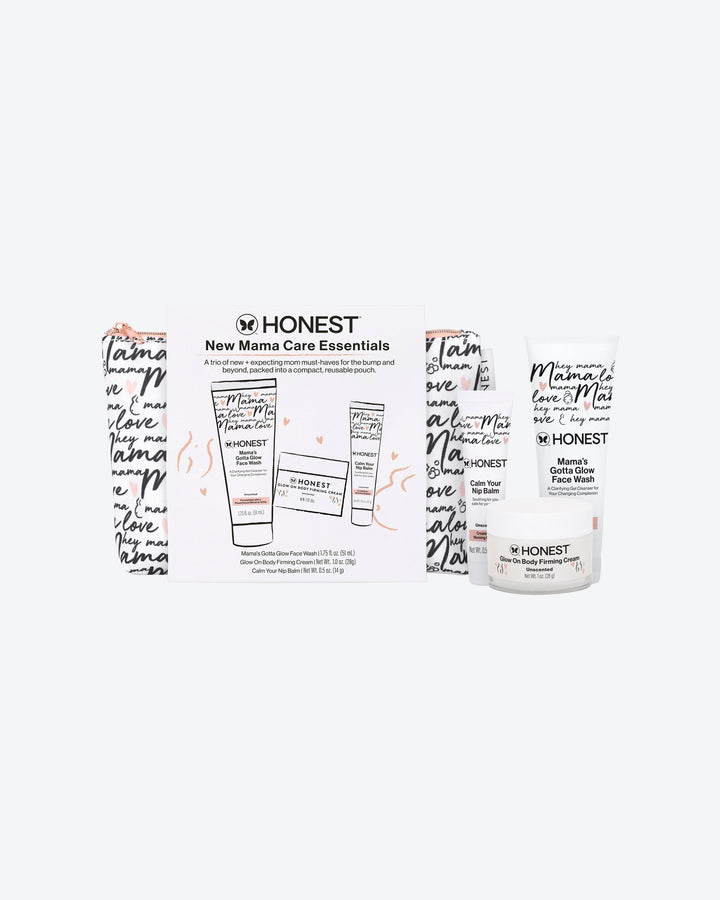 HONEST
New Mama Care Essentials
A trio of new + expecting mom must-haves for the bump and
beyond, packed into a compact, reusable pouch.
mama
Mama
love
Mama
HONEST
Mama's
Gotta Glow
Face Wash
A Clarifying Gel Cleanser for
Your Changing Complexion
1.75 fl. oz. (51 mL)
HONEST
GLOW ON BODY FIRMING CREAM
HONEST
Calm Your
Nip Balm
Mama's Gotta Glow Face Wash | 1.75 fl. oz. (51 mL)
Glow On Body Firming Cream | Net Wt. 1.0 oz. (28g)
Calm Your Nip Balm | Net Wt. 0.5 oz. (14 g)
Mama
mama
love
hey mama
Mama
love
HONEST
HONEST
Calm Your
Nip Balm
hey mama
Mama love
love & Mama
hey mama
love & hey mama
HONEST
Mama's
Gotta Glow
Face Wash
A Clarifying Gel Cleanser for
Your Changing Complexion
HONEST
Glow On Body Firming Cream
Unscented
Net Wt. 1 oz (28 g)